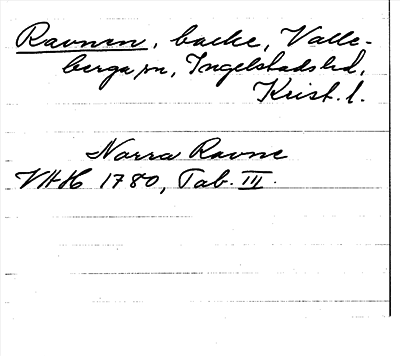 Ravnen, backe, Valle-
berga sn, Ingelstads hd,
Krist. l.
Norra Ravne
VHH 1780, Tab. III.